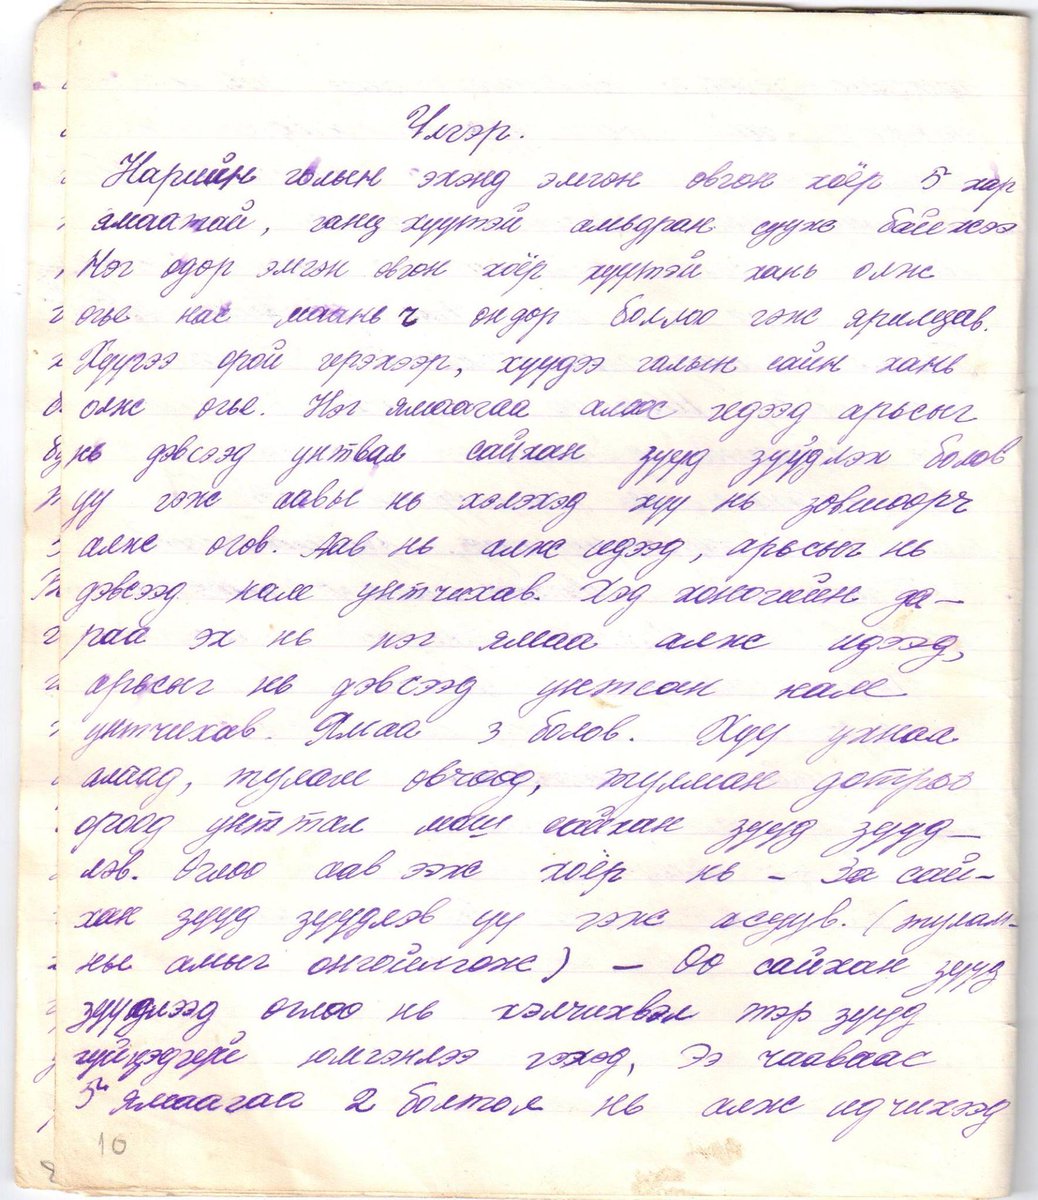 Үлгэр.
Нарийн голын эхэнд эмгэн өвгөн хоёр 5 хар
ямаатай, ганц хүүтэй амьдран сууж байжээ
Нэг өдөр эмгэн өвгөн хоёр хүүтэй хань олж
өгье нас маань ч өндөр боллоо гэж ярилцав.
Хүүгээ орой ирэхээр, хүүдээ галын сайн хань
олж өгье. Нэг ямаагаа алаж идээд арьсыг
нь дэвсээд унтвал сайхан зүүд зүүдлэх болов
уу гэж аавы нь хэлэхэд хүү нь зөвшөөрч
алж өгөв. Аав нь алж идээд, арьсыг нь
дэвсээд нам унтчихав. Хэд хоногийн да-
раа эх нь нэг ямаа алж идээд,
арьсыг нь дэвсээд унтсан нам
унтчихав. Ямаа 3 болов. Хүү ухнаа
алаад, тулам өвчөөд, тулман дотроо
ороод унттал маш сайхан зүүд зүүд-
лэв. Өглөө аав ээж хоёр нь - За сай-
хан зүүд зүүдлэв үү гэж асуув. (тулам-
ны амыг онгойлгож) - Өө сайхан зүүд
зүүдлээд өглөө нь хэлчихвэл тэр зүүд
гүйцэдгүй юмгэнлээ гэхэд, Ээ чааваас
5 ямаагаа 2 болтол нь алж идчихээд
10